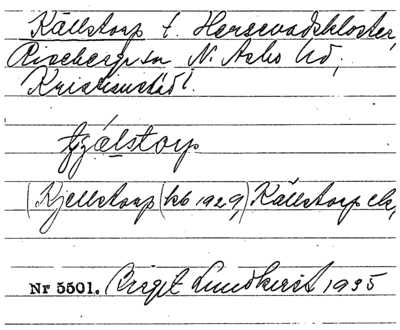 Källstorp f. Herrevadskloster,
Riseberga sn N. Åsbo hd,
Kristianstad l.
çälstorp
(Kjellstorp (kb 1929,) Källstorp ek,
Nr 5501. Birgit Lundkvist 1935